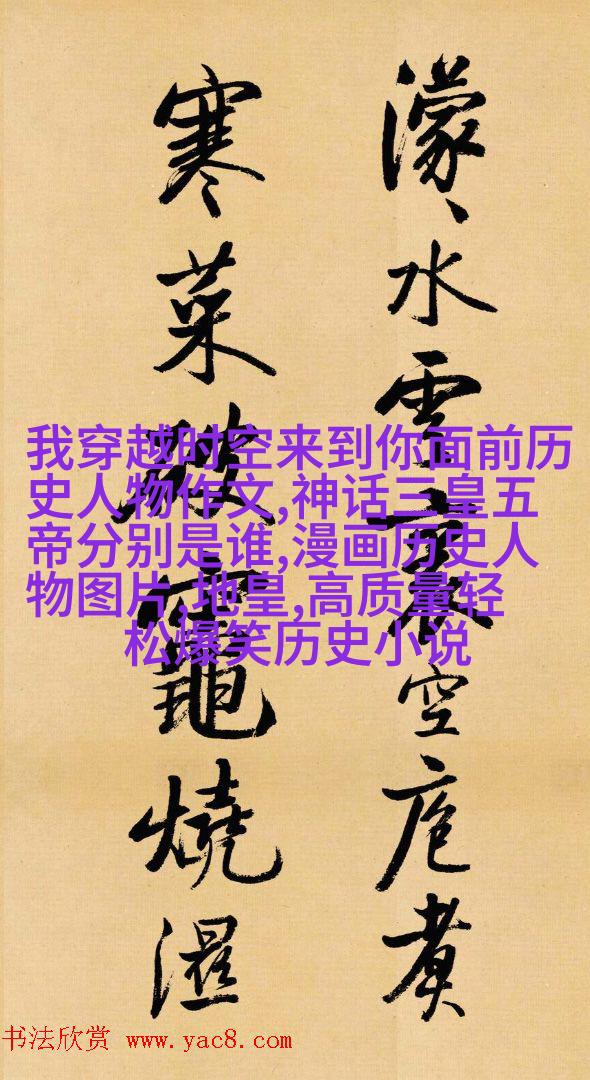 濛〻水雲裏空庖煮
寒菜破竈燒濕
我穿越时空来到你面前历
史人物作文,神话三皇五
帝分别是谁,漫画历史人
物图片,地皇,高质量轻
松爆笑历史小说
书法欣赏 www.yac8.com